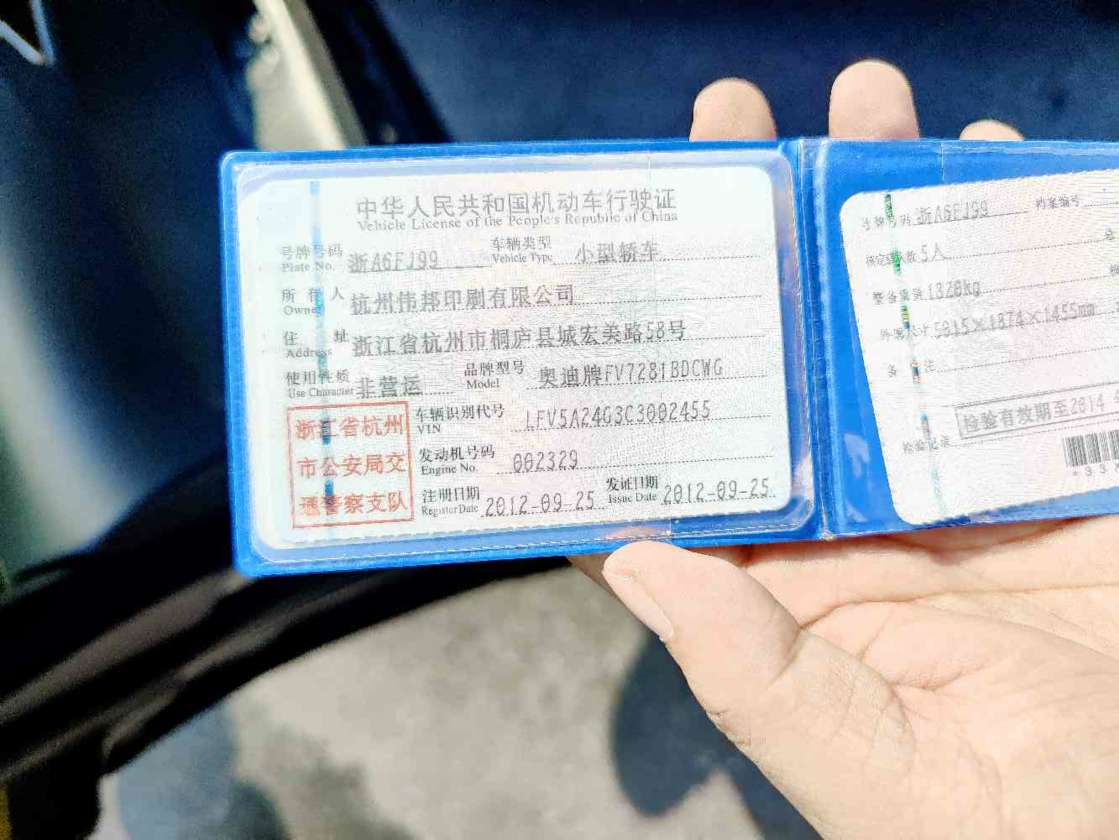 中华人民共和国机动车行驶证
Vehicle License of the People's Republic of China
号牌号码 Plate No. 浙A6FJ99 车辆类型 Vehicle Type 小型轿车
所有人 Owner 杭州伟邦印刷有限公司
住址 Address 浙江省杭州市桐庐县城宏美路58号
使用性质 Use Character 非营运 品牌型号 Model 奥迪牌FV7281BDCWG
浙江省杭州
市公安局交
通警察支队
车辆识别代号 VIN LFV5A24G3C3002455
发动机号码 Engine No. 002329
注册日期 Register Date 2012-09-25 发证日期 Issue Date 2012-09-25
号牌号码 浙A6FJ99 档案编号
核定载人数 5人
整备质量 1820kg
外廓尺寸 5015×1874×1455mm
备注
检验记录 检验有效期至2014